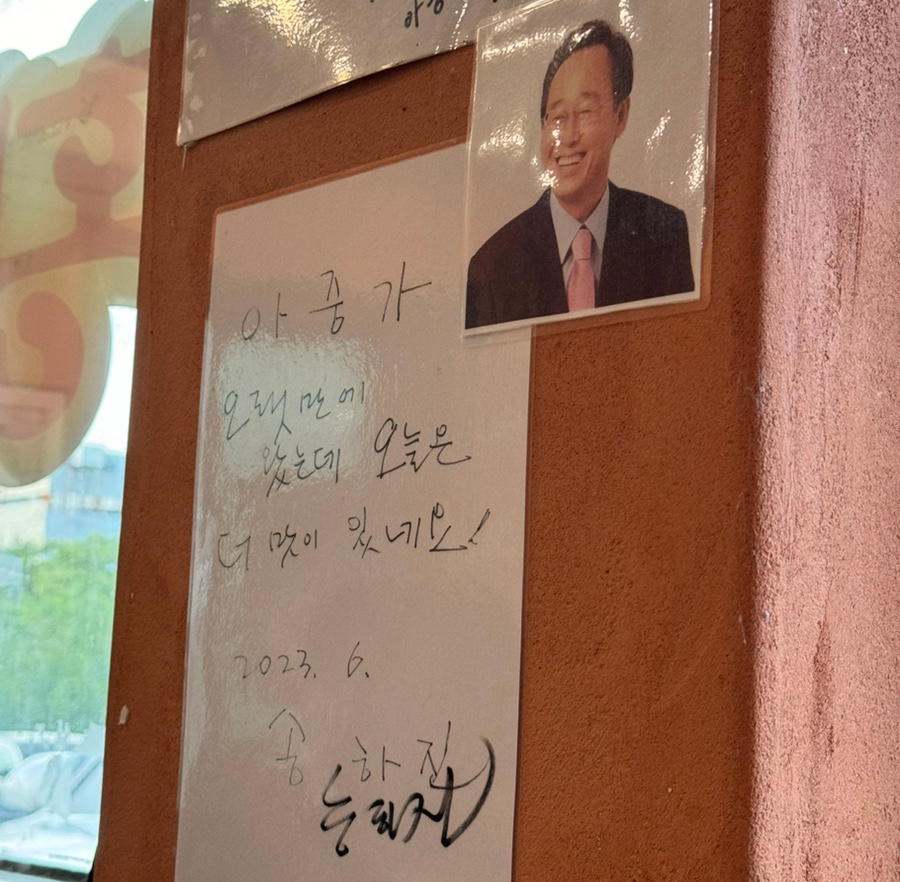 아중가
오랫만에
왔는데 오늘은
더 맛이 있네요!
2023. 6.
송하진